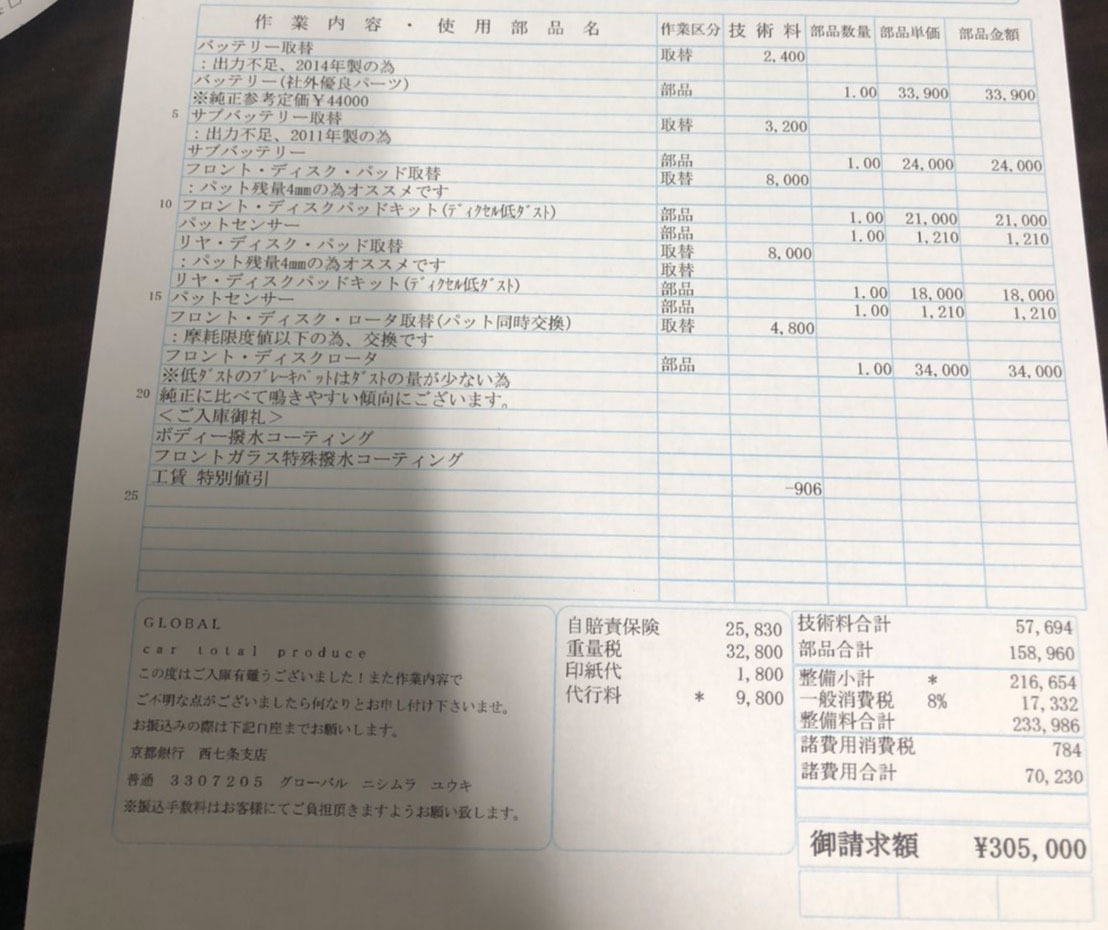 作業内容・使用部品名 作業区分 技術料 部品数量 部品単価 部品金額
バッテリー取替 取替 2,400
：出力不足、2014年製の為
バッテリー(社外優良パーツ) 部品 1.00 33,900 33,900
※純正参考定価￥44000
5 サブバッテリー取替 取替 3,200
：出力不足、2011年製の為
サブバッテリー 部品 1.00 24,000 24,000
フロント・ディスク・パッド取替 取替 8,000
：パット残量4㎜の為オススメです
10 フロント・ディスクパッドキット(ﾃﾞｨｸｾﾙ低ﾀﾞｽﾄ) 部品 1.00 21,000 21,000
パットセンサー 部品 1.00 1,210 1,210
リヤ・ディスク・パッド取替 取替 8,000
：パット残量4㎜の為オススメです 取替
リヤ・ディスクパッドキット(ﾃﾞｨｸｾﾙ低ﾀﾞｽﾄ) 部品 1.00 18,000 18,000
15 パットセンサー 部品 1.00 1,210 1,210
フロント・ディスク・ロータ取替(パット同時交換) 取替 4,800
：摩耗限度値以下の為、交換です
フロント・ディスクロータ 部品 1.00 34,000 34,000
※低ﾀﾞｽﾄのﾌﾞﾚｰｷﾊﾟｯﾄはﾀﾞｽﾄの量が少ない為
20 純正に比べて鳴きやすい傾向にございます。
＜ご入庫御礼＞
ボディー撥水コーティング
フロントガラス特殊撥水コーティング
工賃 特別値引 -906
25
GLOBAL
car total produce
この度はご入庫有難うございました！また作業内容で
ご不明な点がございましたら何なりとお申し付け下さいませ。
お振込みの際は下記口座までお願いします。
京都銀行 西七条支店
普通 3307205 グローバル ニシムラ ユウキ
※振込手数料はお客様にてご負担頂きますようお願い致します。
自賠責保険 25,830
重量税 32,800
印紙代 1,800
代行料 * 9,800
技術料合計 57,694
部品合計 158,960
整備小計 * 216,654
一般消費税 8% 17,332
整備料合計 233,986
諸費用消費税 784
諸費用合計 70,230
御請求額 ¥305,000